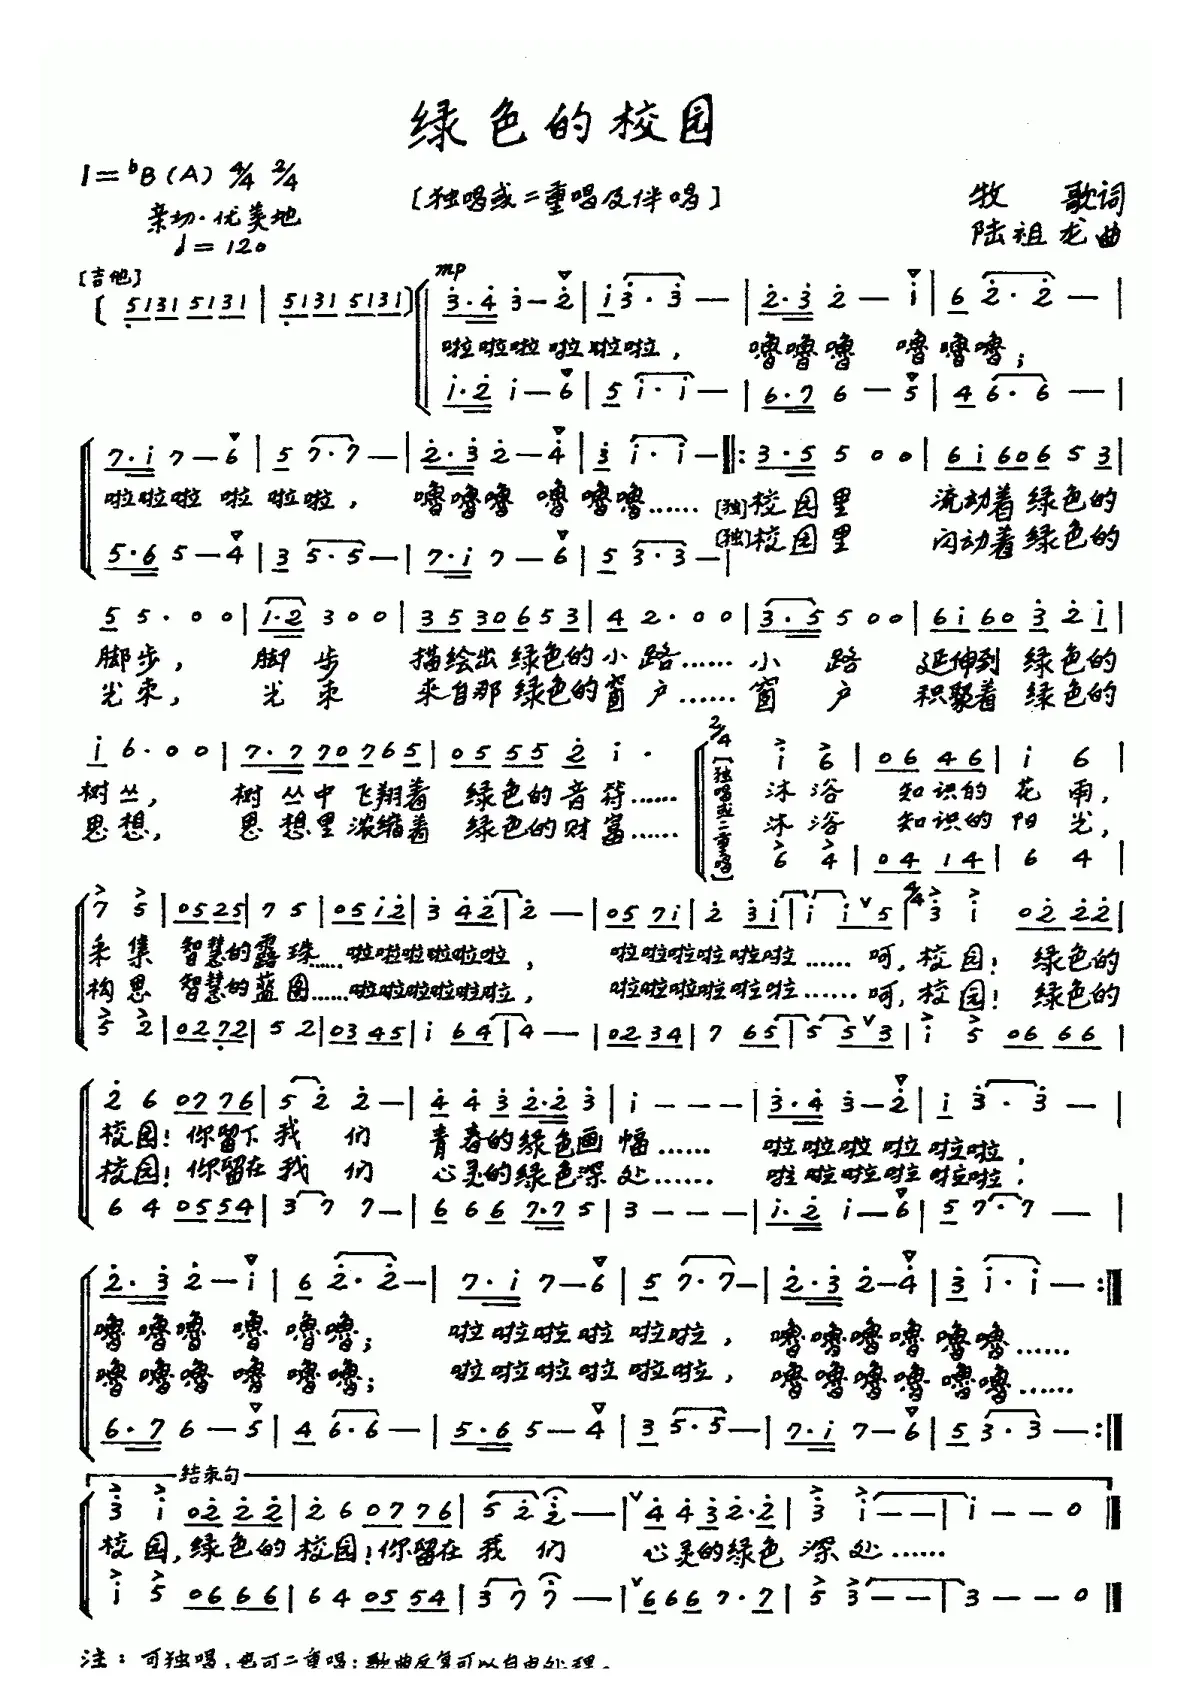 绿色的校园
1=♭B(A) 4/4 2/4
[独唱或二重唱及伴唱]
牧 歌词
亲切·优美地
陆祖龙曲
♩=120
[吉他] mp
(5131 5131 | 5131 5131) 3·4 3-2 | i 3·3 - | 2·3 2 - i | 6 2·2 - |
啦啦啦 啦啦啦， 噜噜噜 噜噜噜；
i·2 i-6 | 5 i·i - | 6·7 6 - 5 | 4 6·6 - |
7·i 7-6 | 5 7·7- | 2·3 2-4 | 3 i·i- ‖: 3·5 5 0 0 | 6i 606 5 3 |
啦啦啦 啦 啦啦， 噜噜噜 噜噜噜…… [独]校园里 流动着绿色的
[独]校园里 闪动着绿色的
5·6 5-4 | 3 5·5- | 7·i 7-6 | 5 3·3- |
5 5· 0 0 | i·2 3 0 0 | 35 306 5 3 | 4 2· 0 0 | 3·5 5 0 0 | 6i 60 3 2 i |
脚步， 脚步 描绘出绿色的小路…… 小路 延伸到 绿色的
光束， 光束 来自那绿色的窗户…… 窗户 积聚着 绿色的
i 6· 0 0 | 7·7 70 765 | 05 55 2 i · 2/4 i 6 | 06 46 | i 6 |
树丛， 树丛中飞翔着 绿色的音符…… 沐浴 知识的花雨，
思想， 思想里浓缩着 绿色的财富…… 沐浴 知识的阳光，
[独唱或二重唱]
6 4 | 04 i4 | 6 4 |
7 5 | 0525 | 7 5 | 05i2 | 3 42 | 2 - | 05 7i | 2 3i | i i 5 | 4/4 3 i 02 22 |
采集 智慧的露珠……啦啦啦啦啦啦， 啦啦啦啦啦啦……呵，校园！绿色的
构思 智慧的蓝图……啦啦啦啦啦啦， 啦啦啦啦啦啦……呵，校园！绿色的
5 2 | 0272 | 5 2 | 0345 | i 64 | 4 - | 0234 | 7 65 | 5 5 3 | i 5 06 66 |
2 6 07 76 | 5 2 2- | 4 4 3 2·2 3 | i - - - | 3·4 3-2 | i 3·3 - |
校园！你留下我们 青春的绿色画幅…… 啦啦啦啦啦啦，
校园！你留在我们 心灵的绿色深处…… 啦啦啦啦啦啦，
6 4 05 54 | 3 7 7- | 6 6 6 7·7 5 | 3 - - - | i·2 i-6 | 5 7·7 - |
2·3 2-i | 6 2·2- | 7·i 7-6 | 5 7·7- | 2·3 2-4 | 3 i·i- :‖
噜噜噜 噜噜噜； 啦啦啦啦啦啦， 噜噜噜噜噜噜……
噜噜噜 噜噜噜； 啦啦啦啦啦啦， 噜噜噜噜噜噜……
6·7 6-5 | 4 6·6- | 5·6 5-4 | 3 5·5- | 7·i 7-6 | 5 3·3- :‖
结束句
3 i 02 22 | 2 6 07 76 | 5 2 2- | 4 4 3 2·2 | 3 i - - | i - - 0 ‖
校园，绿色的校园！你留在我们 心灵的绿色深处……
i 5 06 66 | 6 4 05 54 | 3 7 7- | 6 6 6 7·7 | 5 3 - - | 3 - - 0 ‖
注：可独唱，也可二重唱；歌曲反复可以自由处理。